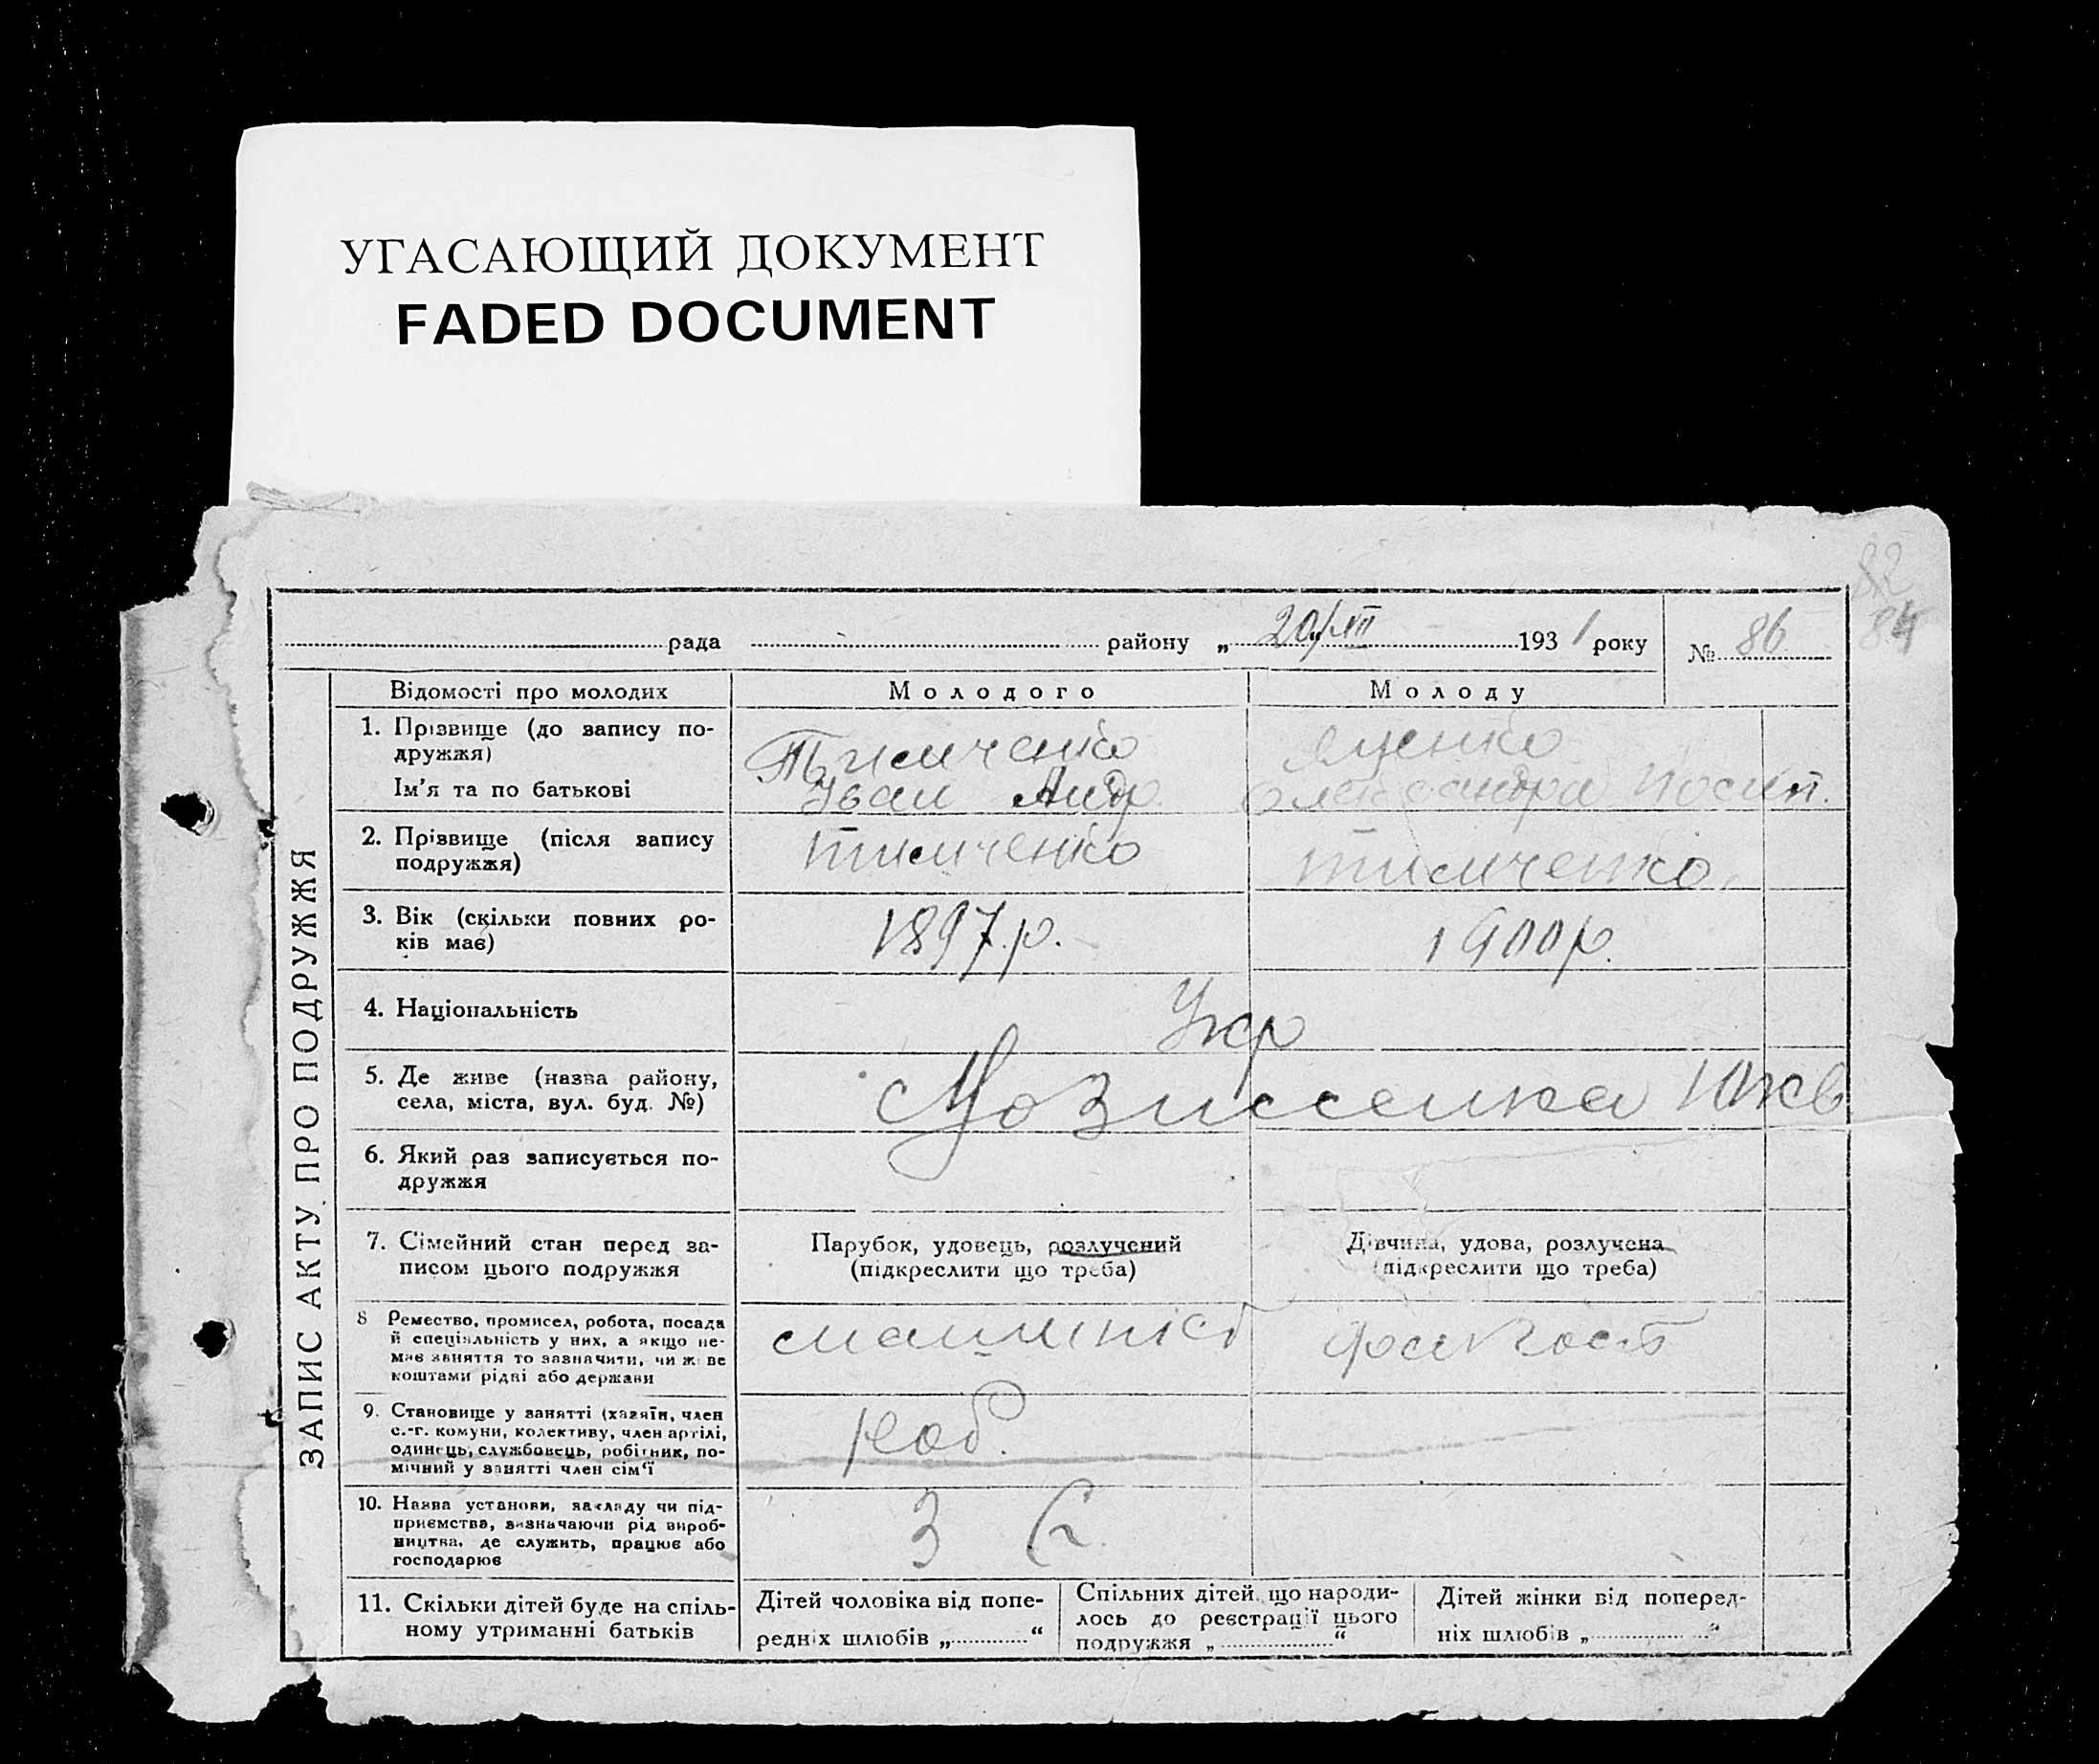 УГАСАЮЩИЙ ДОКУМЕНТ
FADED DOCUMENT
82
84
рада району „ 20/VII 1931 року № 86
ЗАПИС АКТУ ПРО ПОДРУЖЖЯ
Відомості про молодих Молодого Молоду
1. Прізвище (до запису по-
дружжя)
Тимченко Яценко
Ім'я та по батькові Іван Андр. Олександра Йосип.
2. Прізвище (після запису
подружжя)
Тимченко Тимченко
3. Вік (скільки повних ро-
ків має)
1897 р. 1900 р.
4. Національність Укр
5. Де живе (назва району,
села, міста, вул. буд. №)
6. Який раз записується по-
дружжя
7. Сімейний стан перед за-
писом цього подружжя
Парубок, удовець, розлучений
(підкреслити що треба)
Дівчина, удова, розлучена
(підкреслити що треба)
8 Ремество, промисел, робота, посада
й спеціяльність у них, а якщо не-
має заняття то зазначити, чи живе
коштами рідні або держави
машиніст
9. Становище у занятті (хазяїн, член
с.-г. комуни, колективу, член артілі,
одинець, службовець, робітник, по-
мічний у занятті член сім'ї
роб.
10. Назва установи, закладу чи під-
приємства, зазначаючи рід вироб-
ництва, де служить, працює або
господарює
11. Скільки дітей буде на спіль-
ному утриманні батьків
Дітей чоловіка від попе-
редніх шлюбів „ “
Спільних дітей, що народи-
лось до реєстрації цього
подружжя „ “
Дітей жінки від поперед-
ніх шлюбів „ “